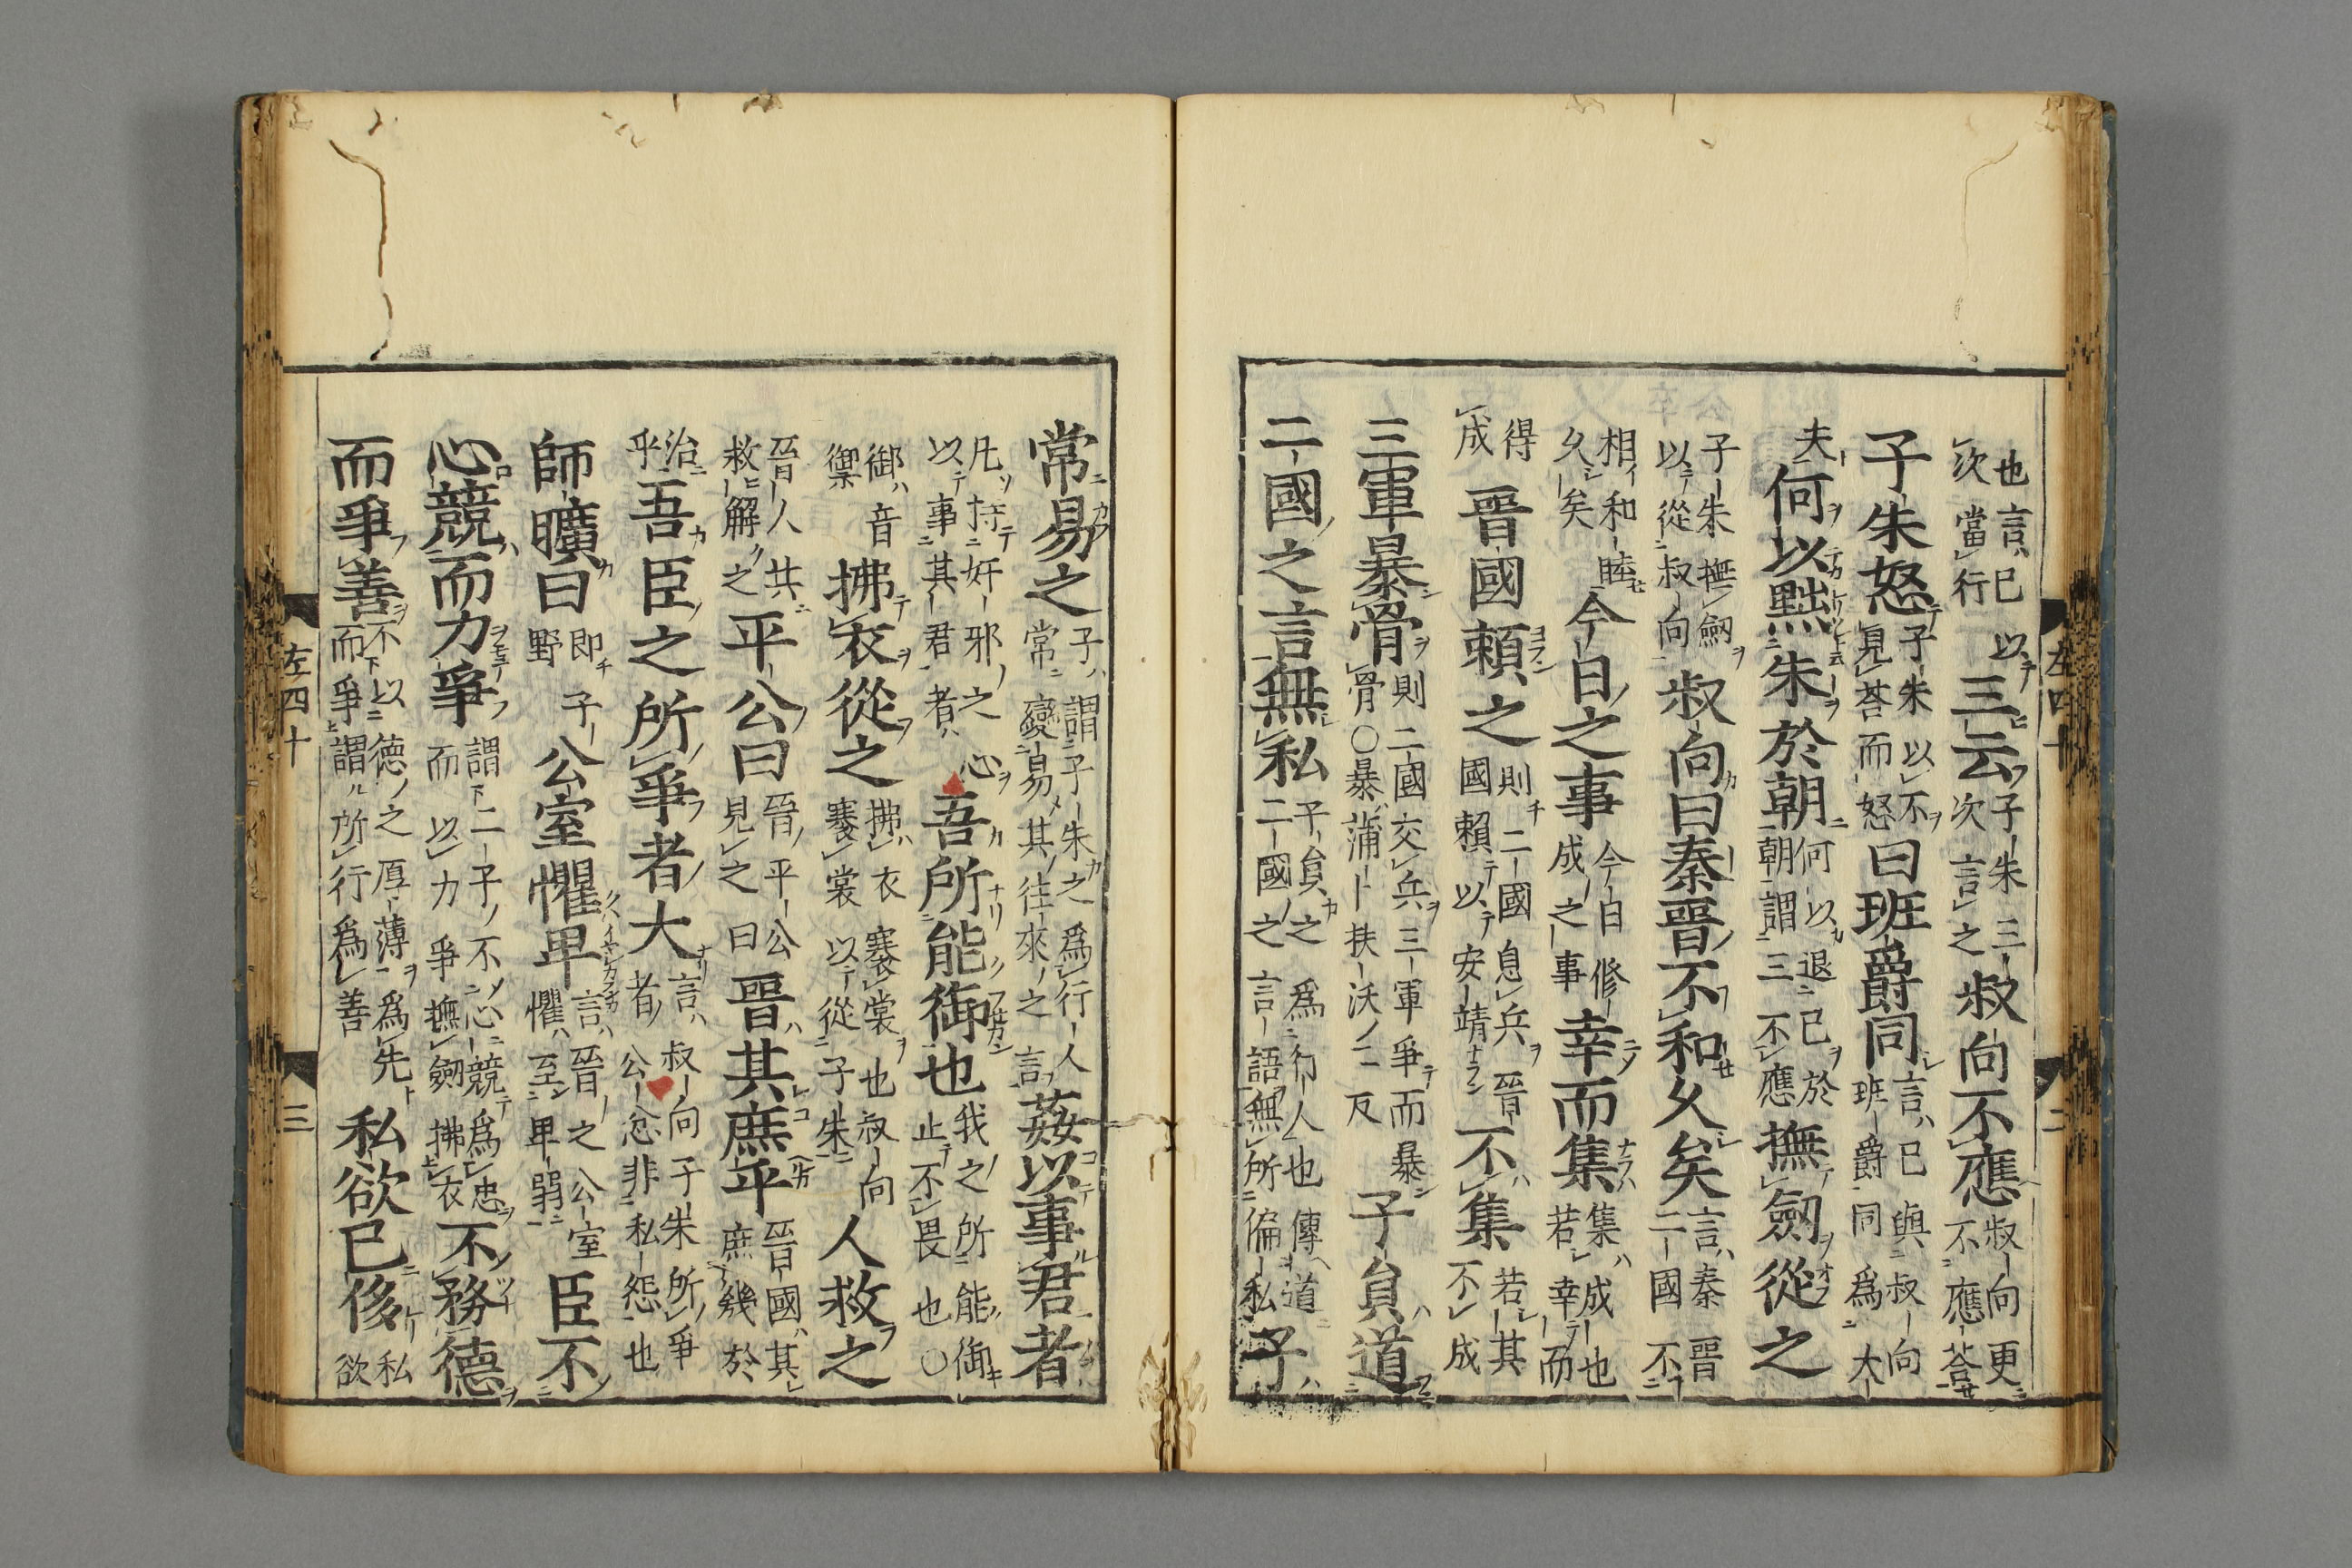 左四十 二
也言已以次當行三云子朱三次言之叔向不應叔向更不應荅
子朱怒子朱以不見荅而怒曰班爵同言已與叔向班爵同爲大
夫何以黜朱於朝何以退已於朝謂三不應撫劍從之
子朱撫劍以從叔向叔向曰秦晋不和久矣言秦晋二國不
相和睦久矣今日之事今日修成之事幸而集集成也若幸而
得成晋國頼之則二國息兵晋國頼以安靖不集若其不成
三軍暴骨則二國交兵三軍爭而暴骨○暴蒲卜扶沃二反子員道
二國之言無私子員之爲行人也傳道二國之言語無所偏私子
常易之子謂子朱之爲行人常變易其往來之言姦以事君者
凡持奸邪之心以事其君者吾所能御也我之所能御止不畏也○
御音禦拂衣從之拂衣褰裳也叔向褰裳以從子朱人救之
晋人共救解之平公曰晋平公見之曰晋其庶乎晋國其庶幾於
治乎吾臣之所爭者大言叔向子朱所爭者公忿非私怨也
師曠曰即子野公室懼卑言晋之公室懼至卑弱臣不
心競而力爭謂二子不心競爲忠而以力爭撫劍拂衣不務德
而爭善不以德之厚薄爲先而爭謂所行爲善私欲已侈私欲
左四十 三